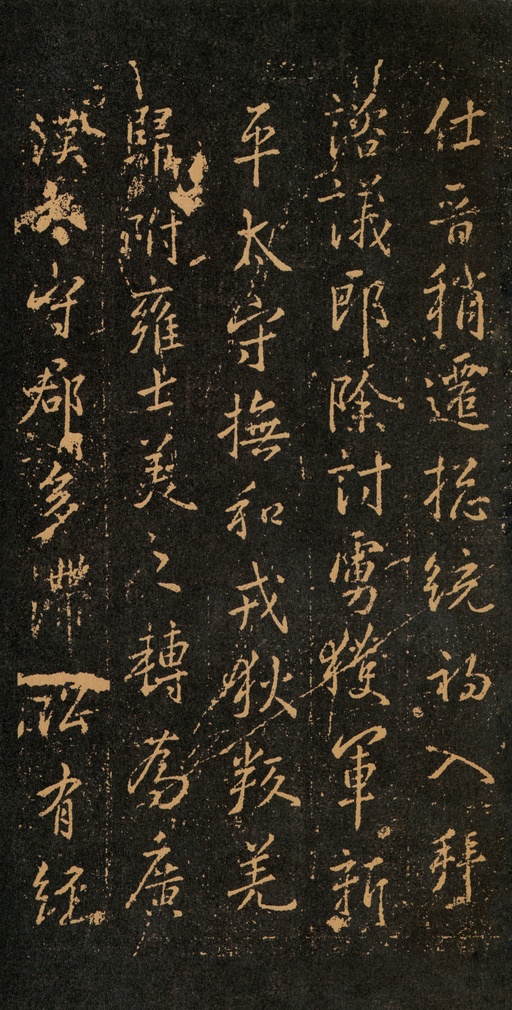 仕晉稍遷揔統初入拜
諮議郎除討虜獲軍新
平太守撫和戎狄叛羌
歸附雍士美之轉為廣
漢太守郡多滯訟有經